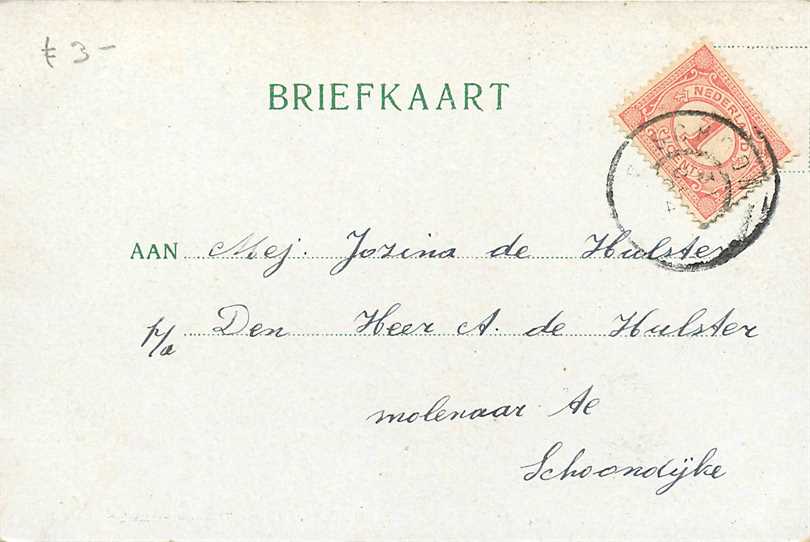 f 3-
BRIEFKAART
NEDERLAND
1
CENT
AAN Mej. Jozina de Hulster
p/a Den Heer A. de Hulster
molenaar te
Schoondijke